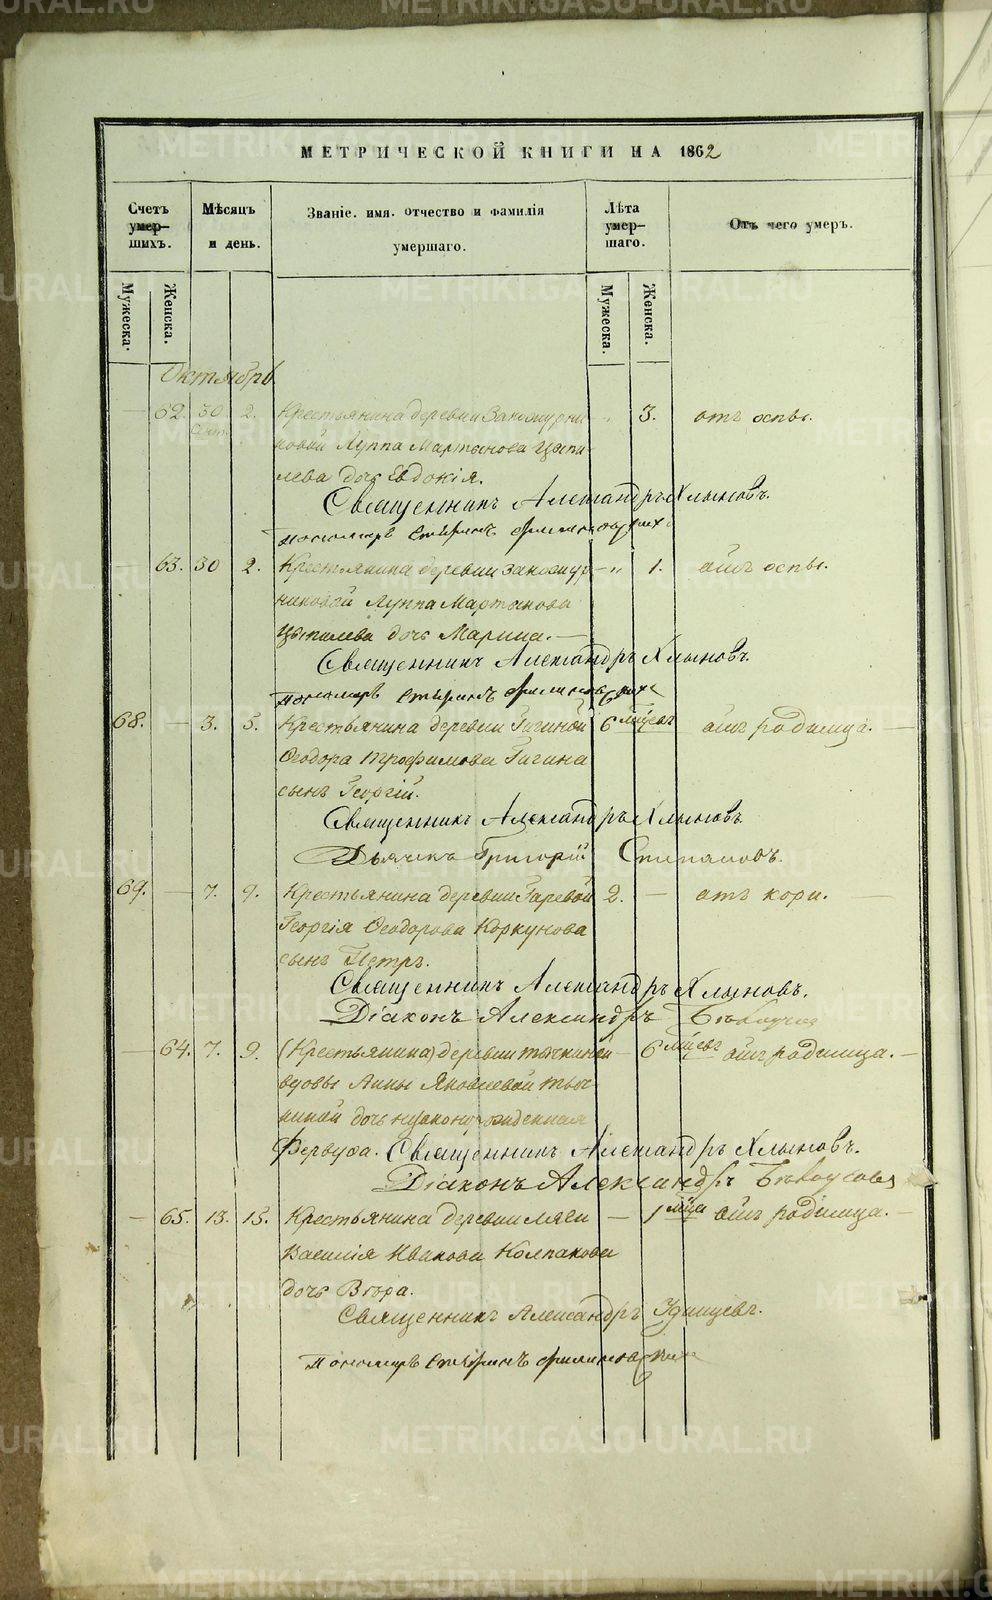 METRIKI.GASO-URAL.RU
МЕТРИЧЕСКОЙ КНИГИ НА 1862
Счетъ умер-шихъ.
Мѣсяцъ и день.
Званіе. имя. отчество и фамилія умершаго.
Лѣта умер-шаго.
Отъ чего умеръ.
Мужеска.
Женска.
Мужеска.
Женска.
Октябрь
— 62. 30 2. Крестьянина деревни 3. отъ оспы.
Сент. Луппа Мартынова
дочь Евдокія.
Священникъ Александръ Хлыновъ.
Пономарь
— 63. 30 2. Крестьянина деревни — " 1. отъ оспы.
Луппа Мартынова
дочь Марина. —
Священникъ Александръ Хлыновъ.
Пономарь
68. — 3. 5. Крестьянина деревни Гигиной 6 мѣсяц отъ родимца. —
Ѳеодора Трофимова Гигина
сынъ Георгій.
Священникъ Александръ Хлыновъ
Дьячекъ Григорій Степановъ.
69. — 7. 9. Крестьянина деревни Гаревой 2. — отъ кори. —
Георгія Ѳеодорова Коркунова
сынъ Петръ.
Священникъ Александръ Хлыновъ.
Діаконъ Александръ
— 64. 7. 9. (Крестьянина) деревни — 6 мѣсяц отъ родимца. —
вдовы Анны Яковлевой
дочь незаконнорожденная
Фервуѳа. Священникъ Александръ Хлыновъ.
Діаконъ Александръ
— 65. 13. 15. Крестьянина деревни — 1 мѣца отъ родимца. —
Василія Иванова Колпакова
дочь
Священникъ Александръ Удинцевъ.
Пономарь